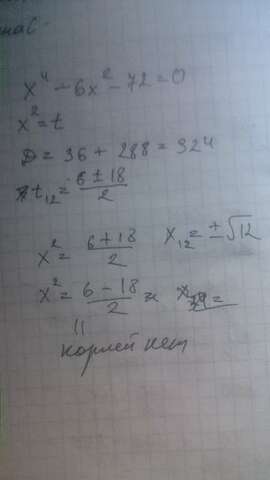 x⁴ - 6x² - 72 = 0
x² = t
D = 36 + 288 = 324
t₁₂ = (6 ± 18)/2
x² = (6 + 18)/2   x₁₂ = ±√12
x² = (6 - 18)/2
корлей нет